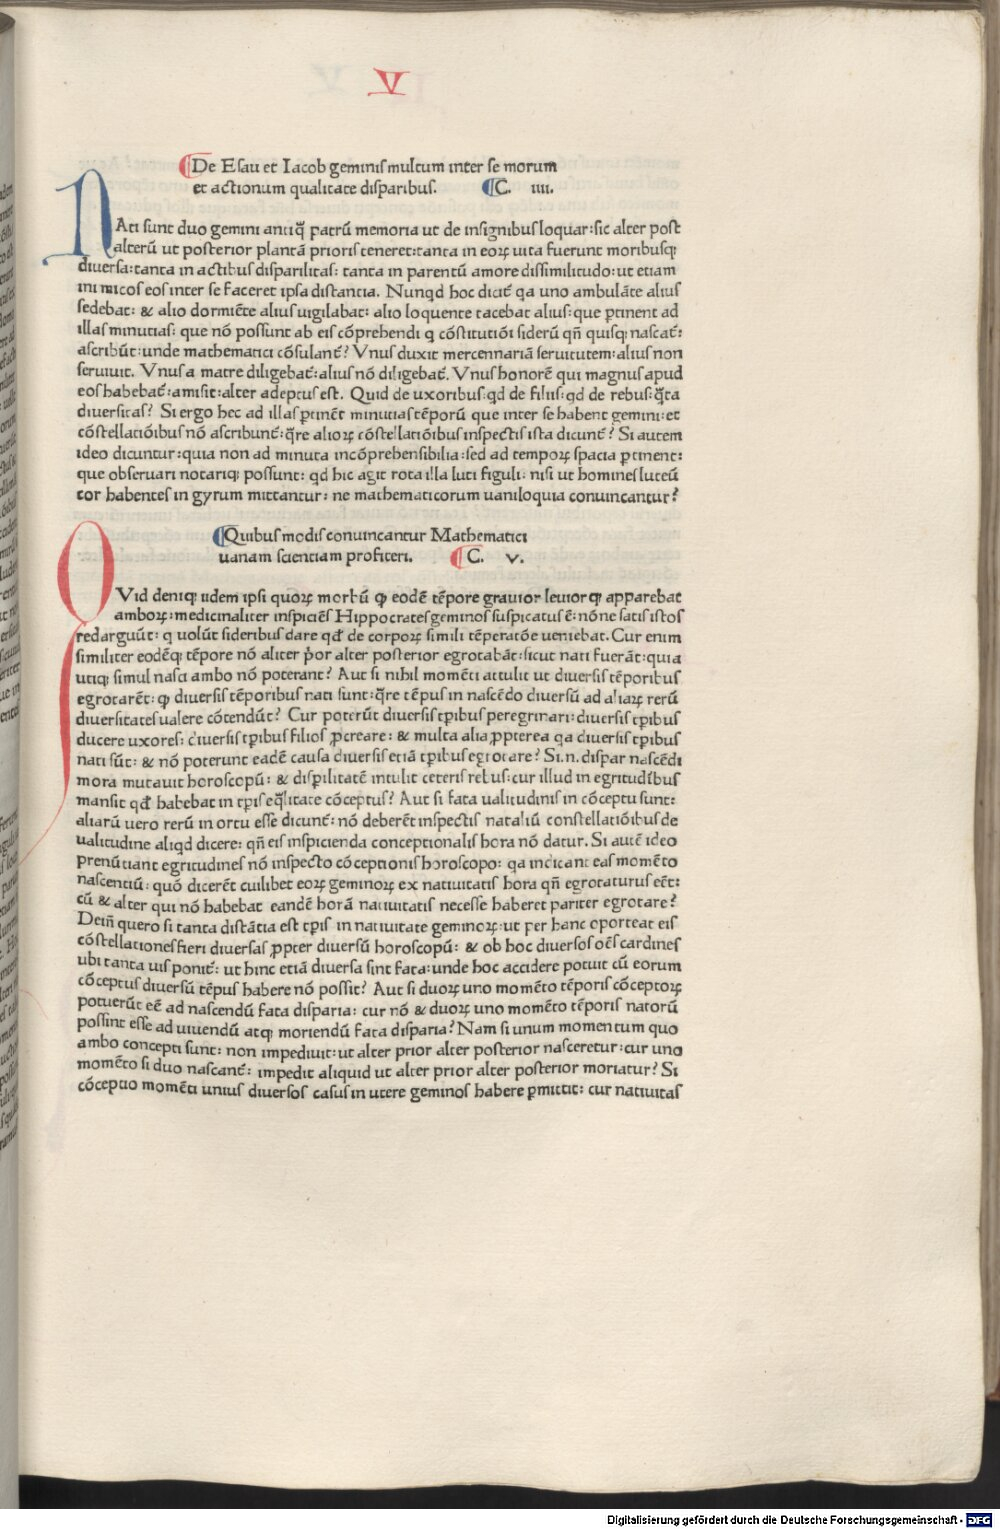 V
De Esau et Iacob geminis multum inter se morum
et actionum qualitate disparibus. C. iiii.
NAti sunt duo gemini antiq̄ patrū memoria ut de insignibus loquar: sic alter post
alterū ut posterior plantā prioris teneret: tanta in eoꝝ uita fuerunt moribusq;
diuersa: tanta in actibus disparilitas: tanta in parentū amore dissimilitudo: ut etiam
inimicos eos inter se faceret ipsa distantia. Nunqd hoc dicit̄ qa uno ambulāte alius
sedebat: & alio dormiēte alius uigilabat: alio loquente tacebat alius: que ꝑtinent ad
illas minutias: que nō possunt ab eis cōprehendi q cōstitutiōi siderū qn̄ quisq; nascat̄:
ascribūt: unde mathematici cōsulant̄? Vnus duxit mercennariā seruitutem: alius non
seruiuit. Vnus a matre diligebat̄: alius nō diligebat̄. Vnus honorē qui magnus apud
eos habebat̄: amisit: alter adeptus est. Quid de uxoribus: qd de filiis: qd de rebus: q̄ta
diuersitas? Si ergo hec ad illas ꝑtinēt minutias tēporū que inter se habent gemini: et
cōstellatiōibus nō ascribunt̄: q̄re alioꝝ cōstellatiōibus inspectis ista dicunt̄? Si autem
ideo dicuntur: quia non ad minuta incōprehensibilia: sed ad tempoꝝ spacia ꝑtinent:
que obseruari notariq; possunt: qd hic agit rota illa luti figuli: nisi ut homines luteū
cor habentes in gyrum mittantur: ne mathematicorum uaniloquia conuincantur?
Quibus modis conuincantur Mathematici
uanam scientiam profiteri. C. v.
QVid deniq; iidem ipsi quoꝝ morbū ꝙ eodē tēpore grauior leuiorq; apparebat
amboꝝ: medicinaliter inspiciēs Hippocrates geminos suspicatus ē: nōne satis istos
redarguūt: q uolūt sideribus dare qd̄ de corpoꝝ simili tēperatōe ueniebat. Cur enim
similiter eodēq; tēpore nō aliter p̄or alter posterior egrotabāt: sicut nati fuerāt: quia
utiq; simul nasci ambo nō poterant? Aut si nihil momēti attulit ut diuersis tēporibus
egrotarēt: ꝙ diuersis tēporibus nati sunt: q̄re tēpus in nascēdo diuersū ad aliaꝝ rerū
diuersitates ualere cōtendūt? Cur poterūt diuersis tꝑibus peregrinari: diuersis tꝑibus
ducere uxores: diuersis tꝑibus filios ꝓcreare: & multa alia ꝓpterea qa diuersis tꝑibus
nati sūt: & nō poterunt eadē causa diuersis etiā tꝑibus egrotare? Si.n. dispar nascēdi
mora mutauit horoscopū: & disꝑilitatē intulit ceteris rebus: cur illud in egritudībus
mansit qd̄ habebat in tꝑis eq̄litate cōceptus? Aut si fata ualitudinis in cōceptu sunt:
aliarū uero rerū in ortu esse dicunt̄: nō deberēt inspectis nataliū constellatiōibus de
ualitudine aliqd dicere: qn̄ eis inspicienda conceptionalis hora nō datur. Si autē ideo
prenūtiant egritudines nō inspecto cōceptionis horoscopo: qa indicant eas momēto
nascentiū: quō dicerēt cuilibet eoꝝ geminoꝝ ex natiuitatis hora qn̄ egrotaturus eēt:
cū & alter qui nō habebat eandē horā natiuitatis necesse haberet pariter egrotare?
Dein̄ quero si tanta distātia est tꝑis in natiuitate geminoꝝ: ut per hanc oporteat eis
cōstellationes fieri diuersas ꝓpter diuersū horoscopū: & ob hoc diuersos oēs cardines
ubi tanta uis ponit̄: ut hinc etiā diuersa sint fata: unde hoc accidere potuit cū eorum
cōceptus diuersū tēpus habere nō possit? Aut si duoꝝ uno momēto tēporis cōceptoꝝ
potuerūt eē ad nascendū fata disparia: cur nō & duoꝝ uno momēto tēporis natorū
possint esse ad uiuendū atq; moriendū fata disparia? Nam si unum momentum quo
ambo concepti sunt: non impediuit: ut alter prior alter posterior nasceretur: cur uno
momēto si duo nascant̄: impedit aliquid ut alter prior alter posterior moriatur? Si
cōceptio momēti unius diuersos casus in utere geminos habere ꝑmittit: cur natiuitas
Digitalisierung gefördert durch die Deutsche Forschungsgemeinschaft - DFG